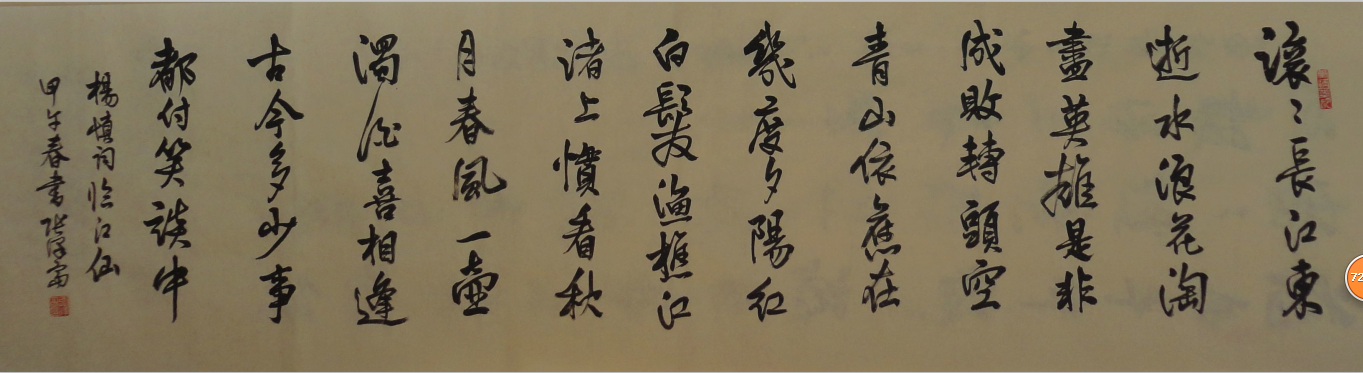 滚〻長江東
逝水浪花淘
盡英雄是非
成敗轉頭空
青山依舊在
幾度夕陽紅
白髮漁樵江
渚上慣看秋
月春風一壺
濁酒喜相逢
古今多少事
都付笑談中
楊慎詞臨江仙
甲午春書
72